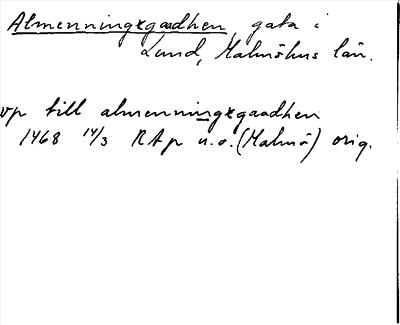 Almenningxgaadhen, gata i
Lund, Malmöhus län.
vp till almenningxgaadhen
1468 14/3 RAp u.o. (Malmö) orig.